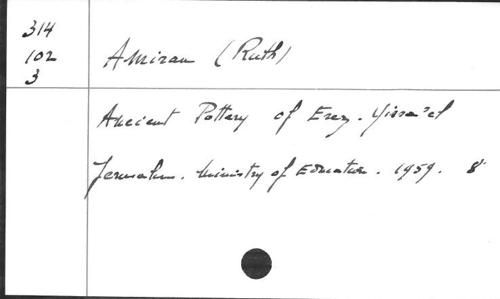 314
102
3
Amiran (Ruth)
Ancient Pottery of Erez. Yisra'el
Jerusalem. Ministry of Education. 1959. 8°